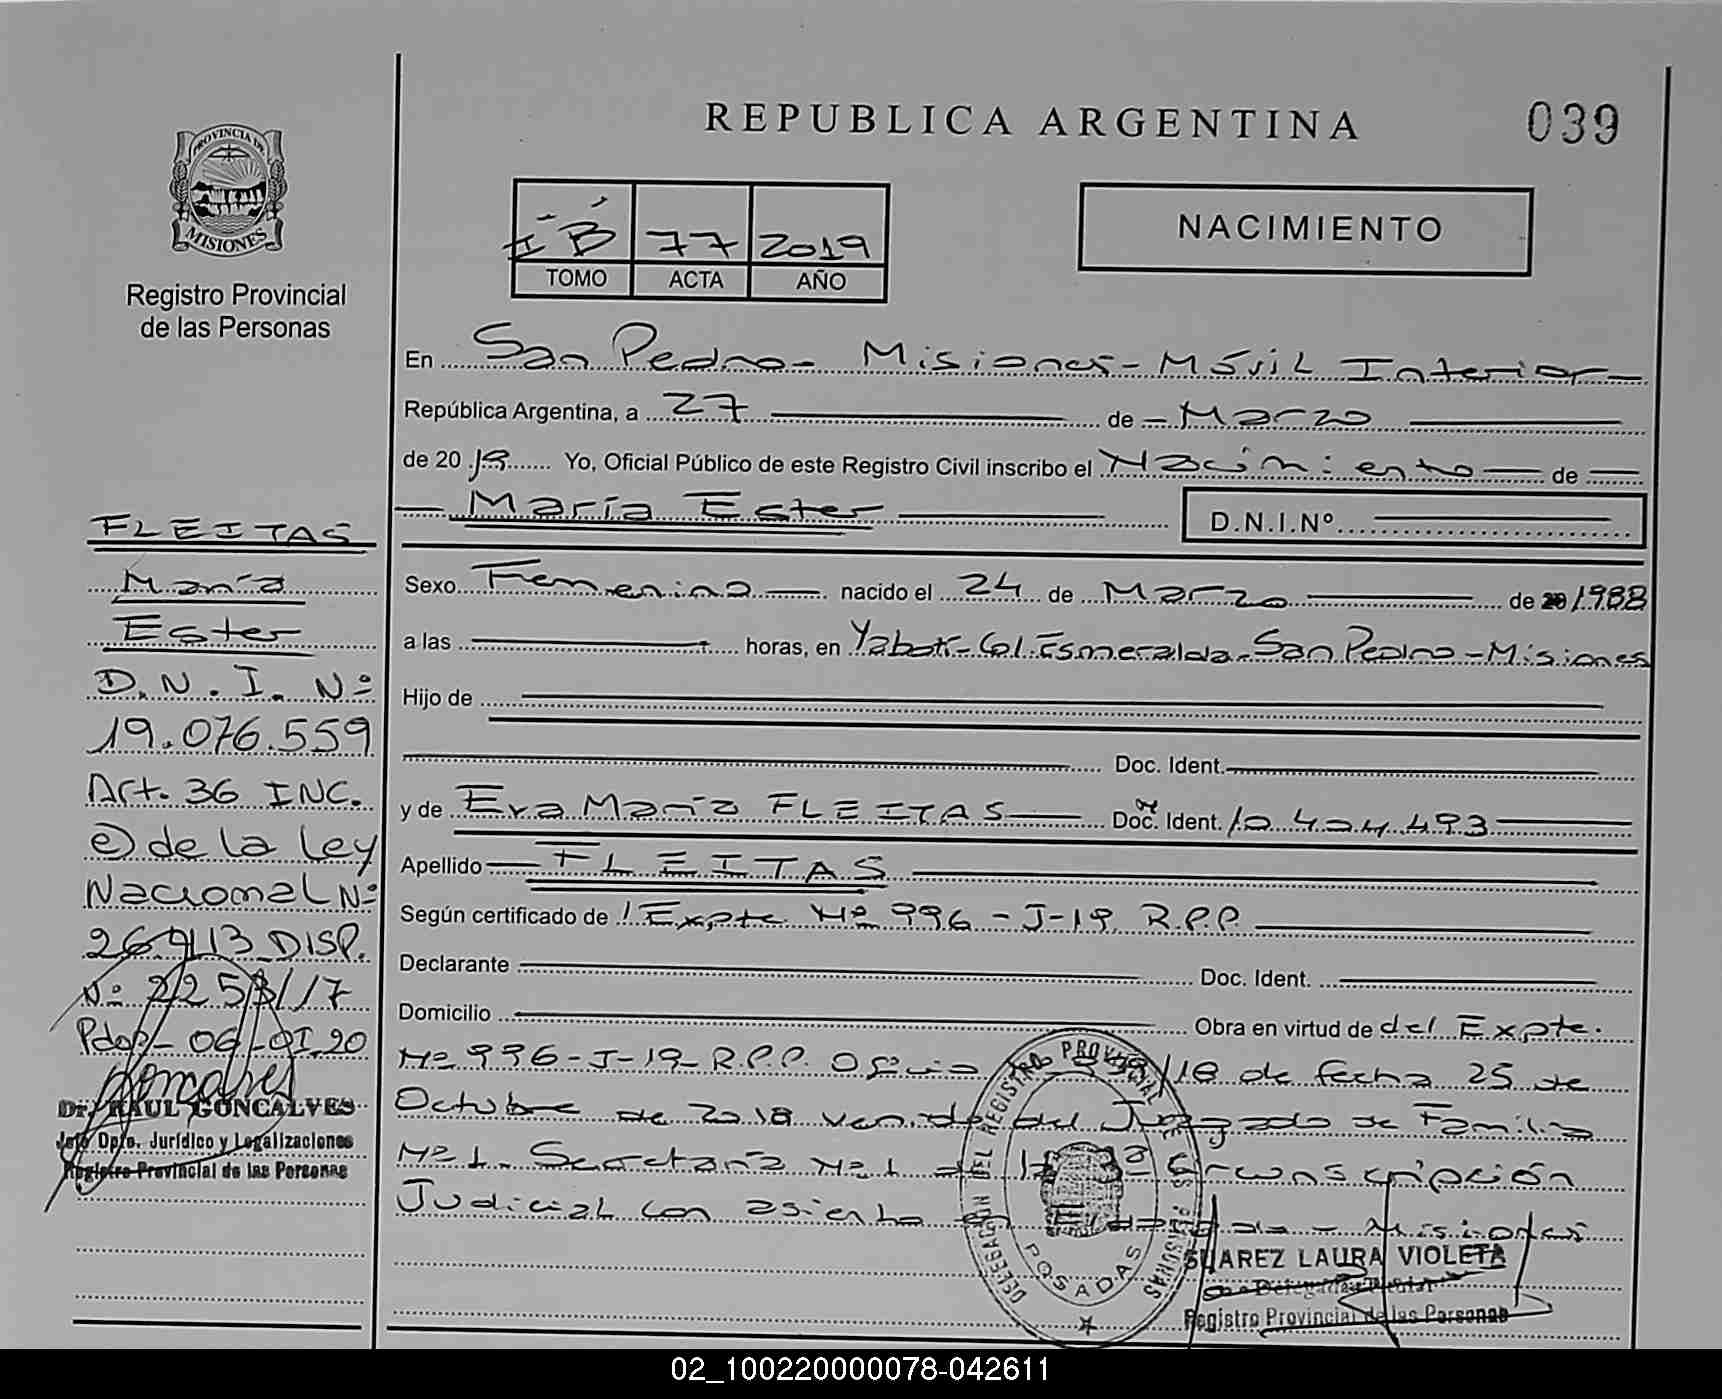 PROVINCIA DE
MISIONES
Registro Provincial
de las Personas
FLEITAS
María
Ester
D.N.I. Nº
19.076.559
Art. 36 INC.
e) de la Ley
Nacional Nº
26.413 DISP.
Nº 2253/17
Pdas- 06-01.20
Dr. RAUL GONCALVES
Jefe Dpto. Jurídico y Legalizaciones
Registro Provincial de las Personas
REPUBLICA ARGENTINA
039
I B 77 2019
TOMO ACTA AÑO
NACIMIENTO
En San Pedro - Misiones - Móvil Interior -
República Argentina, a 27 de Marzo
de 20 19 Yo, Oficial Público de este Registro Civil inscribo el Nacimiento de
María Ester D.N.I.Nº
Sexo Femenino nacido el 24 de Marzo de 1988
a las horas, en Yaboti - Col. Esmeralda - San Pedro - Misiones
Hijo de
Doc. Ident.
y de Eva María FLEITAS Doc. Ident. 10.404.493
Apellido FLEITAS
Según certificado de Expte. Nº 996 - J-19 R.P.P.
Declarante Doc. Ident.
Domicilio Obra en virtud de del Expte.
Nº 996-J-19-R.P.P. Oficio /18 de fecha 25 de
Octubre de 2018 venido del Juzgado de Familia
Nº 1. Secretaría Nº 1 de la Circunscripción
Judicial con asiento Misiones
DELEGACION DEL REGISTRO PROVINCIAL DE LAS PERSONAS
POSADAS
SUAREZ LAURA VIOLETA
Registro Provincial de las Personas
02_100220000078-042611